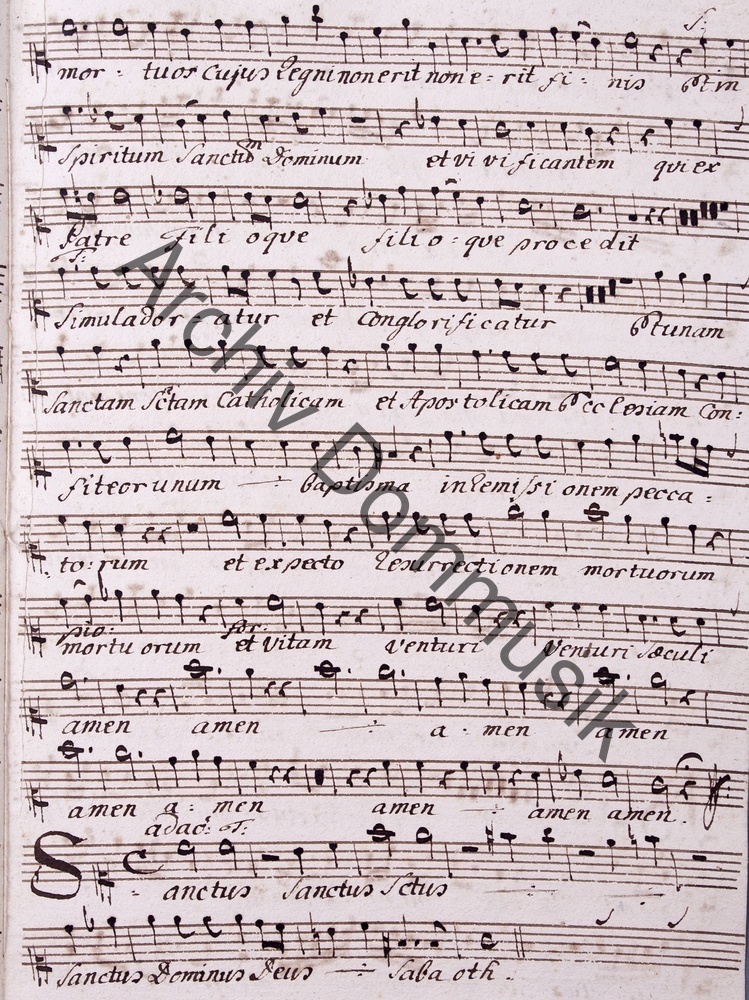 mor - tuos Cujus Regni non erit non e = rit fi = nis Et in
Spiritum Sanctum Dominum et vi vi ficantem qui ex
Patre Fili oque filio = que procedit
Simulador = atur et Conglorificatur Et unam
Sanctam Sctam Catholicam et Apostolicam Ecclesiam Con =
fiteor unum baptisma in Remissi onem pecca =
to = rum et expecto Resurrectionem mortuorum
pio: for:
mortu orum et vitam venturi venturi sæculi
amen amen a - men amen
amen a = men amen amen amen.
adag: T:
Sanctus Sanctus Sctus
Sanctus Dominus Deus Saba oth.
Archiv Dommusik